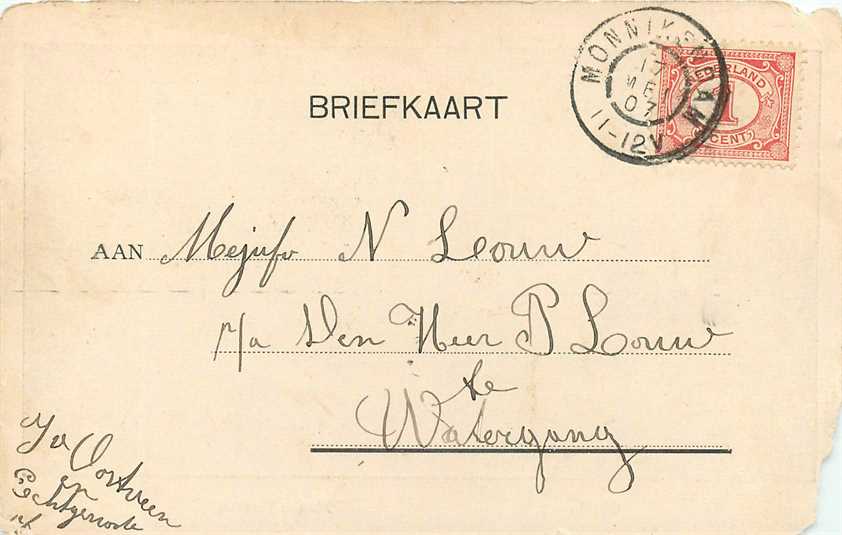 MONNIKENDAM
17
MEI
07
11-12V
NEDERLAND
1
CENT
BRIEFKAART
AAN Mejufv N Leouw
p/a Den Heer P Louw
te
Watergang
Oostveen
en
Echtgenoote